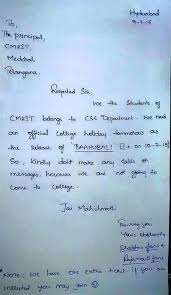 Hyderabad
9-7-15
To,
The principal,
CMRIT,
Medchal
Telangana.
Respected Sir,
We the Students of
CMRIT belongs to CSE Department. We need
an official College holiday tommorow as
the release of "BAAHUBALI" (1st on 10-7-15)
So, kindly dont make any calls or
messages, because we are not going to
Come to College.
Jai Mahishmathi
Yours Obidiently
Prabhas fans &
Rajamouli fans
*Note: We have one extra ticket if you are
intrested you may join ☺